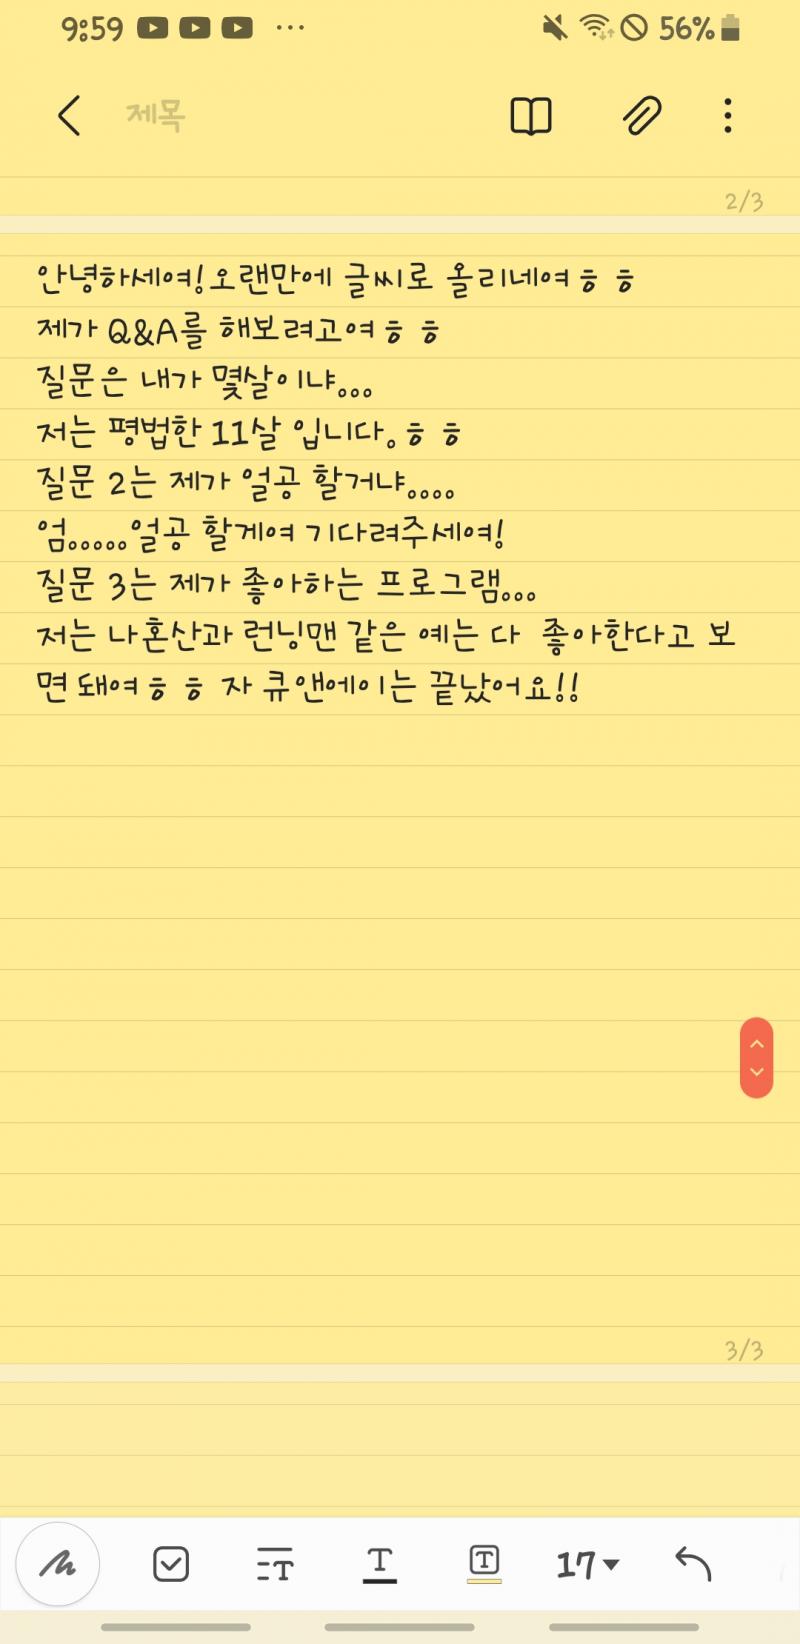 9:59 ... 56%
제목
2/3
안녕하세여!오랜만에 글씨로 올리네여ㅎㅎ
제가 Q&A를 해보려고여ㅎㅎ
질문은 내가 몇살이냐...
저는 평법한 11살 입니다.ㅎㅎ
질문 2는 제가 얼공 할거냐....
엄.....얼공 할게여 기다려주세여!
질문 3는 제가 좋아하는 프로그램...
저는 나혼산과 런닝맨 같은 예는 다  좋아한다고 보
면 돼여ㅎㅎ 자 큐앤에이는 끝났어요!!
3/3
17